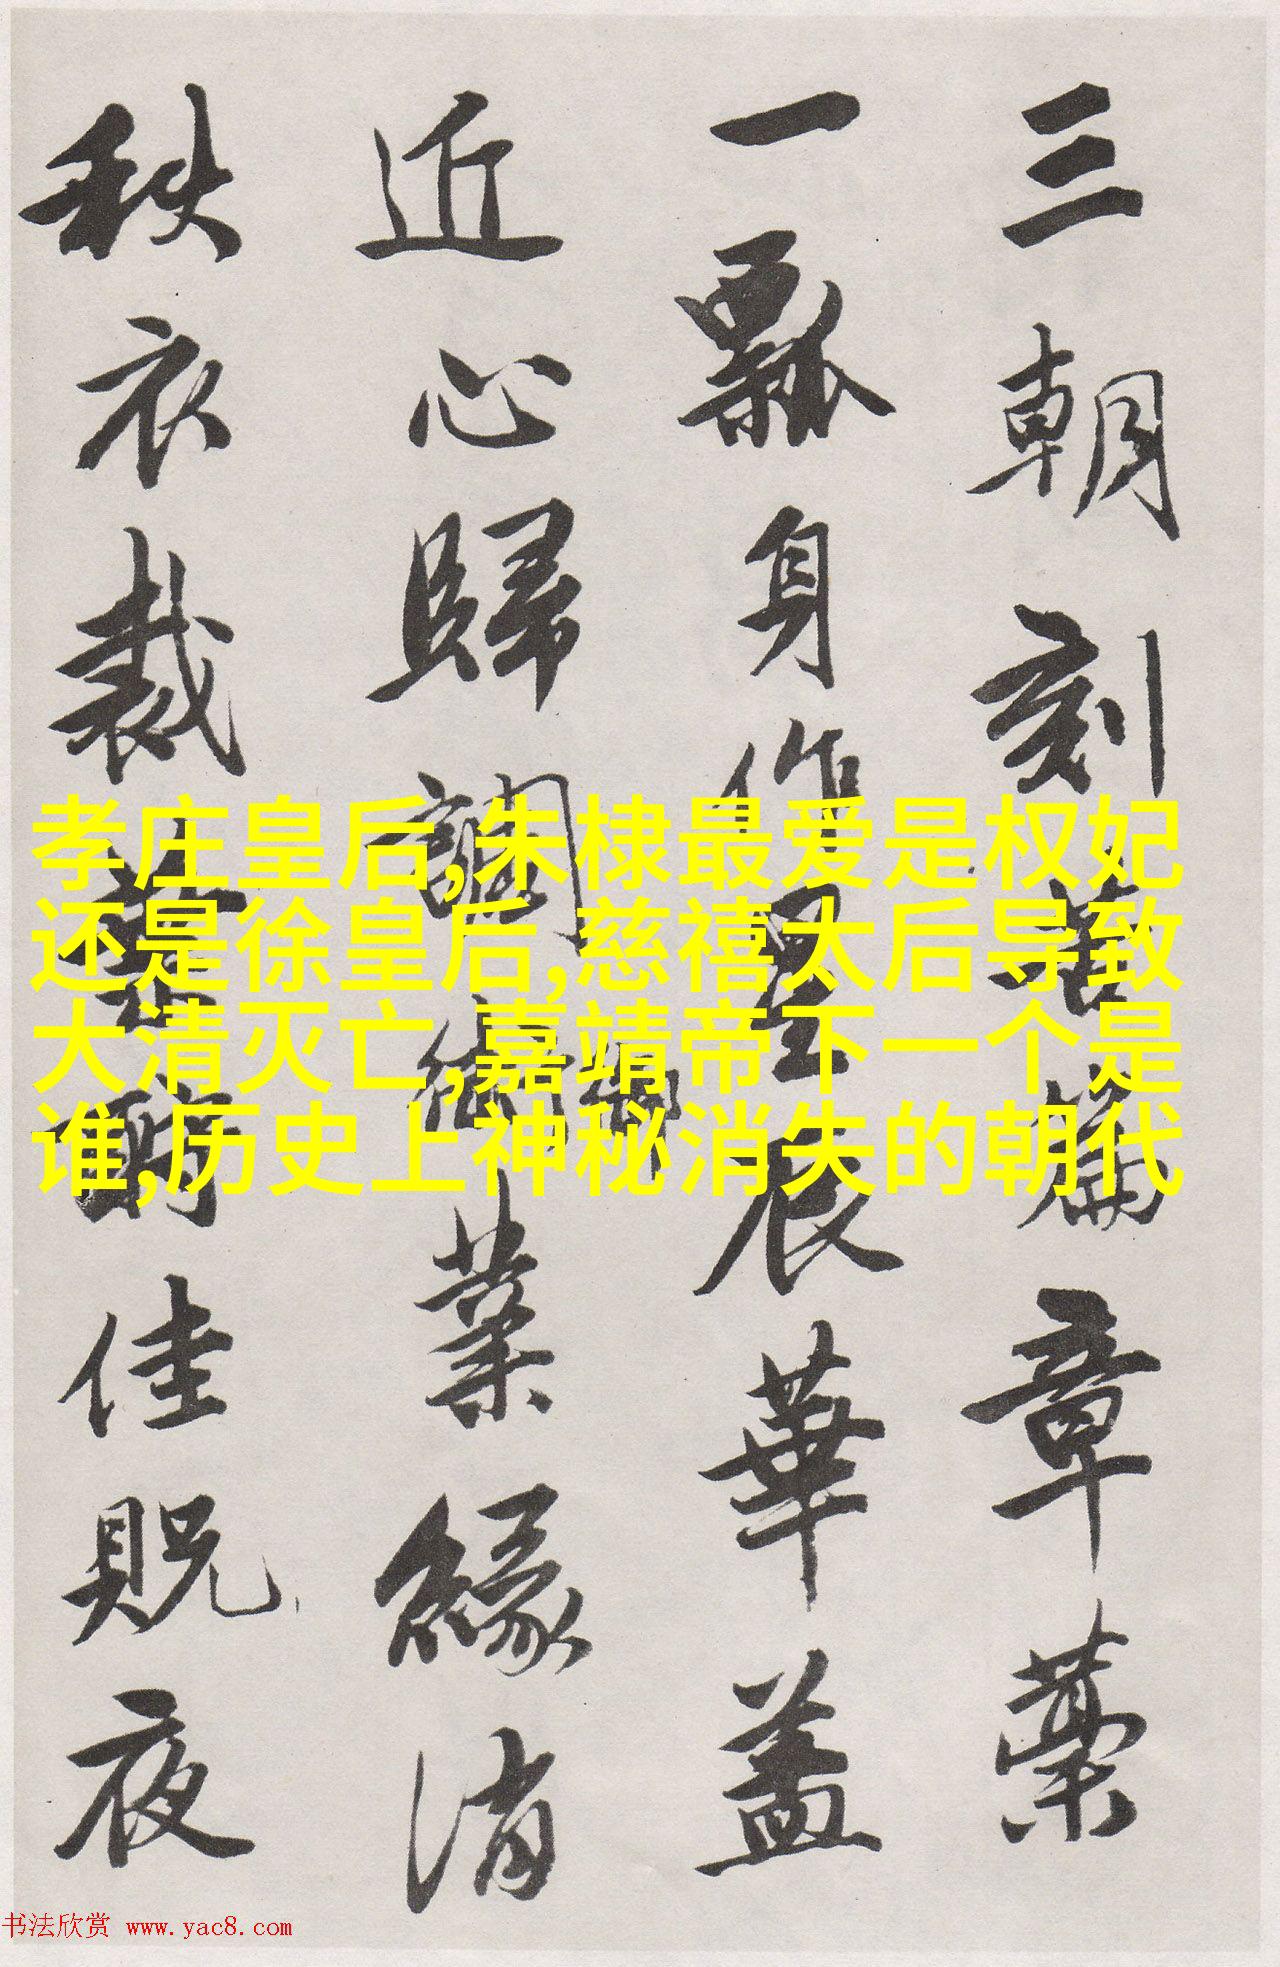 三朝刻篇章藁
一瓢身作星辰華蓋
近心歸調御業緣消
秩衣裁酬佳貺夜
孝庄皇后,朱棣最爱是权妃
还是徐皇后,慈禧太后导致
大清灭亡,嘉靖帝下一个是
谁,历史上神秘消失的朝代
书法欣赏 www.yac8.com